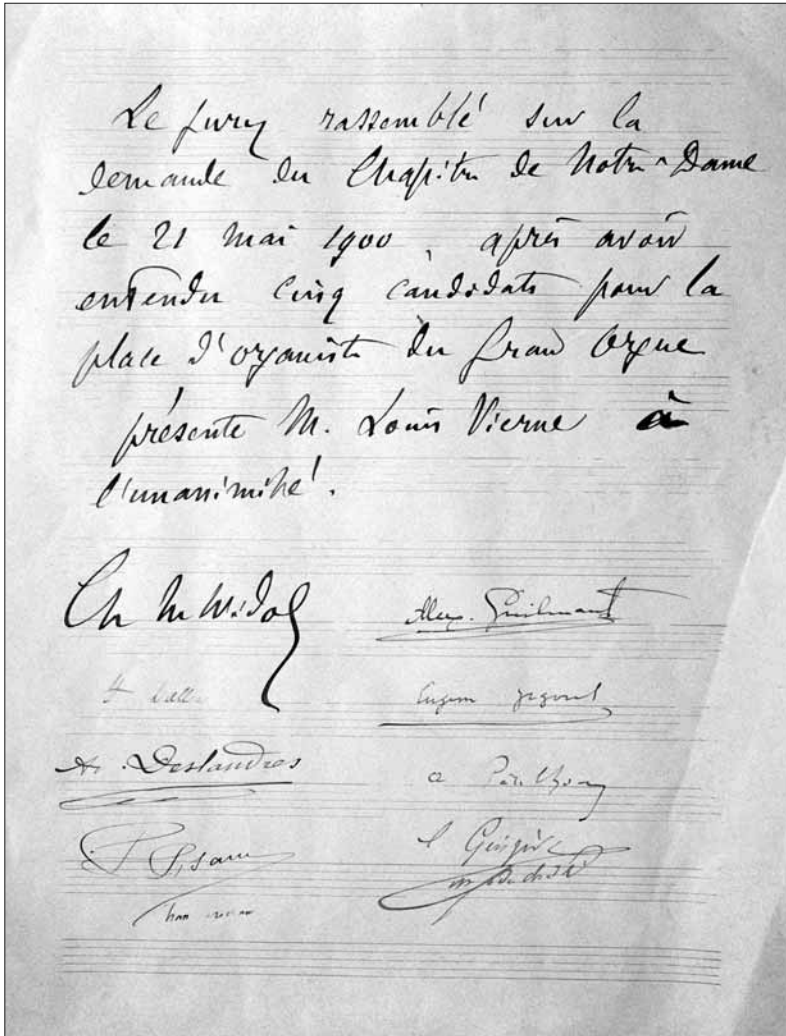 Le jury rassemblé sur la
demande du Chapitre de Notre-Dame
le 21 mai 1900, après avoir
entendu cinq candidats pour la
place d'organiste du Grand Orgue
présente M. Louis Vierne à
l'unanimité.
Ch M Widor
Alex. Guilmant
Eugène Gigout
A. Deslandres